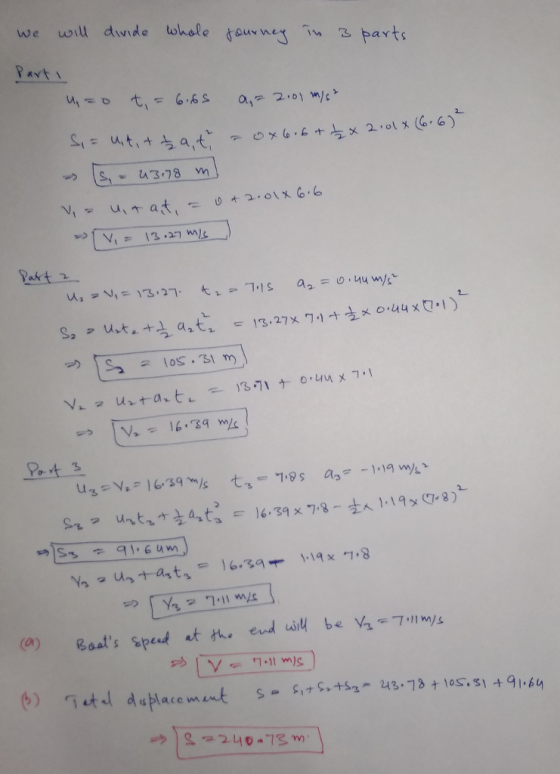 We will divide whole journey in 3 parts
Part 1
u₁ = 0 t₁ = 6.6s a₁ = 2.01 m/s²
S₁ = u₁t₁ + ½ a₁t₁² = 0×6.6 + ½ × 2.01 × (6.6)²
⇒ S₁ = 43.78 m
V₁ = u₁ + a₁t₁ = 0 + 2.01×6.6
⇒ V₁ = 13.27 m/s
Part 2
u₂ = V₁ = 13.27. t₂ = 7.1s a₂ = 0.44 m/s²
S₂ = u₂t₂ + ½ a₂t₂² = 13.27×7.1 + ½ × 0.44×(7.1)²
⇒ S₂ = 105.31 m
V₂ = u₂ + a₂t₂ = 13.71 + 0.44 × 7.1
⇒ V₂ = 16.39 m/s
Part 3
u₃ = V₂ = 16.39 m/s t₃ = 7.8s a₃ = -1.19 m/s²
S₃ = u₃t₃ + ½ a₃t₃² = 16.39 × 7.8 - ½ × 1.19 × (7.8)²
⇒ S₃ = 91.64m
V₃ = u₃ + a₃t₃ = 16.39 - 1.19 × 7.8
⇒ V₃ = 7.11 m/s
(a) Boat's speed at the end will be V₃ = 7.11 m/s
⇒ V = 7.11 m/s
(b) Total displacement S = S₁+S₂+S₃ = 43.78 + 105.31 + 91.64
⇒ S = 240.73 m